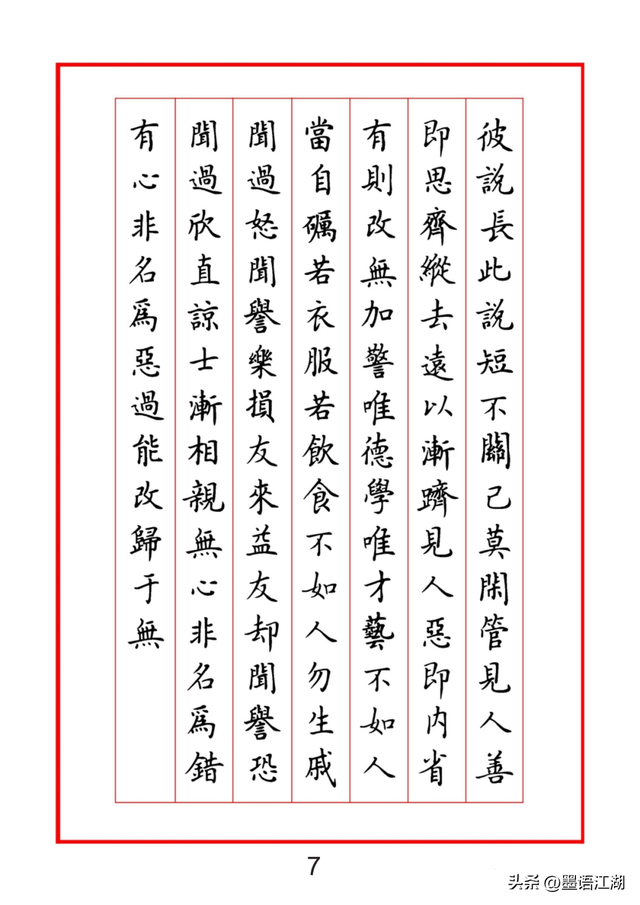 彼說長此說短不關己莫閑管見人善
即思齊縱去遠以漸躋見人惡即內省
有則改無加警唯德學唯才藝不如人
當自礪若衣服若飲食不如人勿生戚
聞過怒聞譽樂損友來益友却聞譽恐
聞過欣直諒士漸相親無心非名爲錯
有心非名爲惡過能改歸于無
7
头条 @墨语江湖